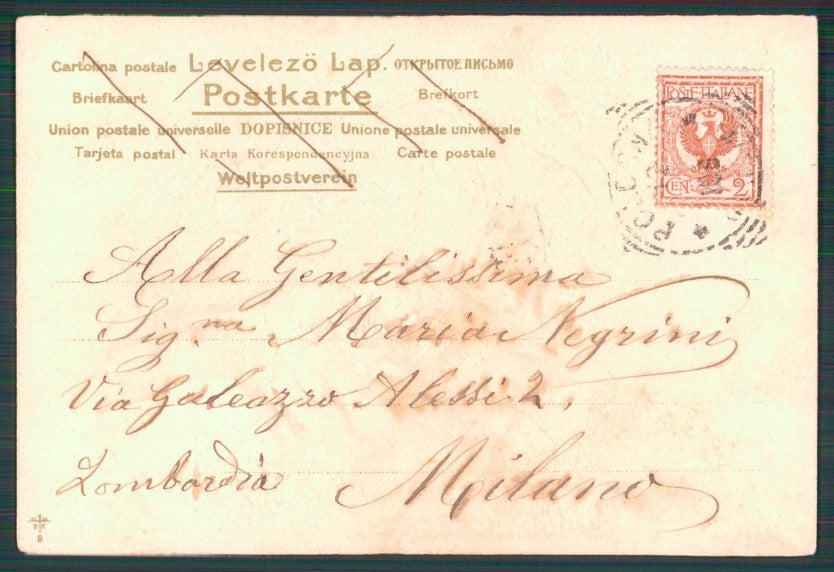 Cartolina postale Levelező Lap. ОТКРЫТОЕ ПИСЬМО
Briefkaart Postkarte Brefkort
Union postale universelle DOPISNICE Unione postale universale
Tarjeta postal Karta Korespondencyjna Carte postale
Weltpostverein
POSTE ITALIANE
CENT. 2
Alla Gentilissima
Sig.na Maria Negrini
Via Galeazzo Alessi 2,
Lombardia Milano
B